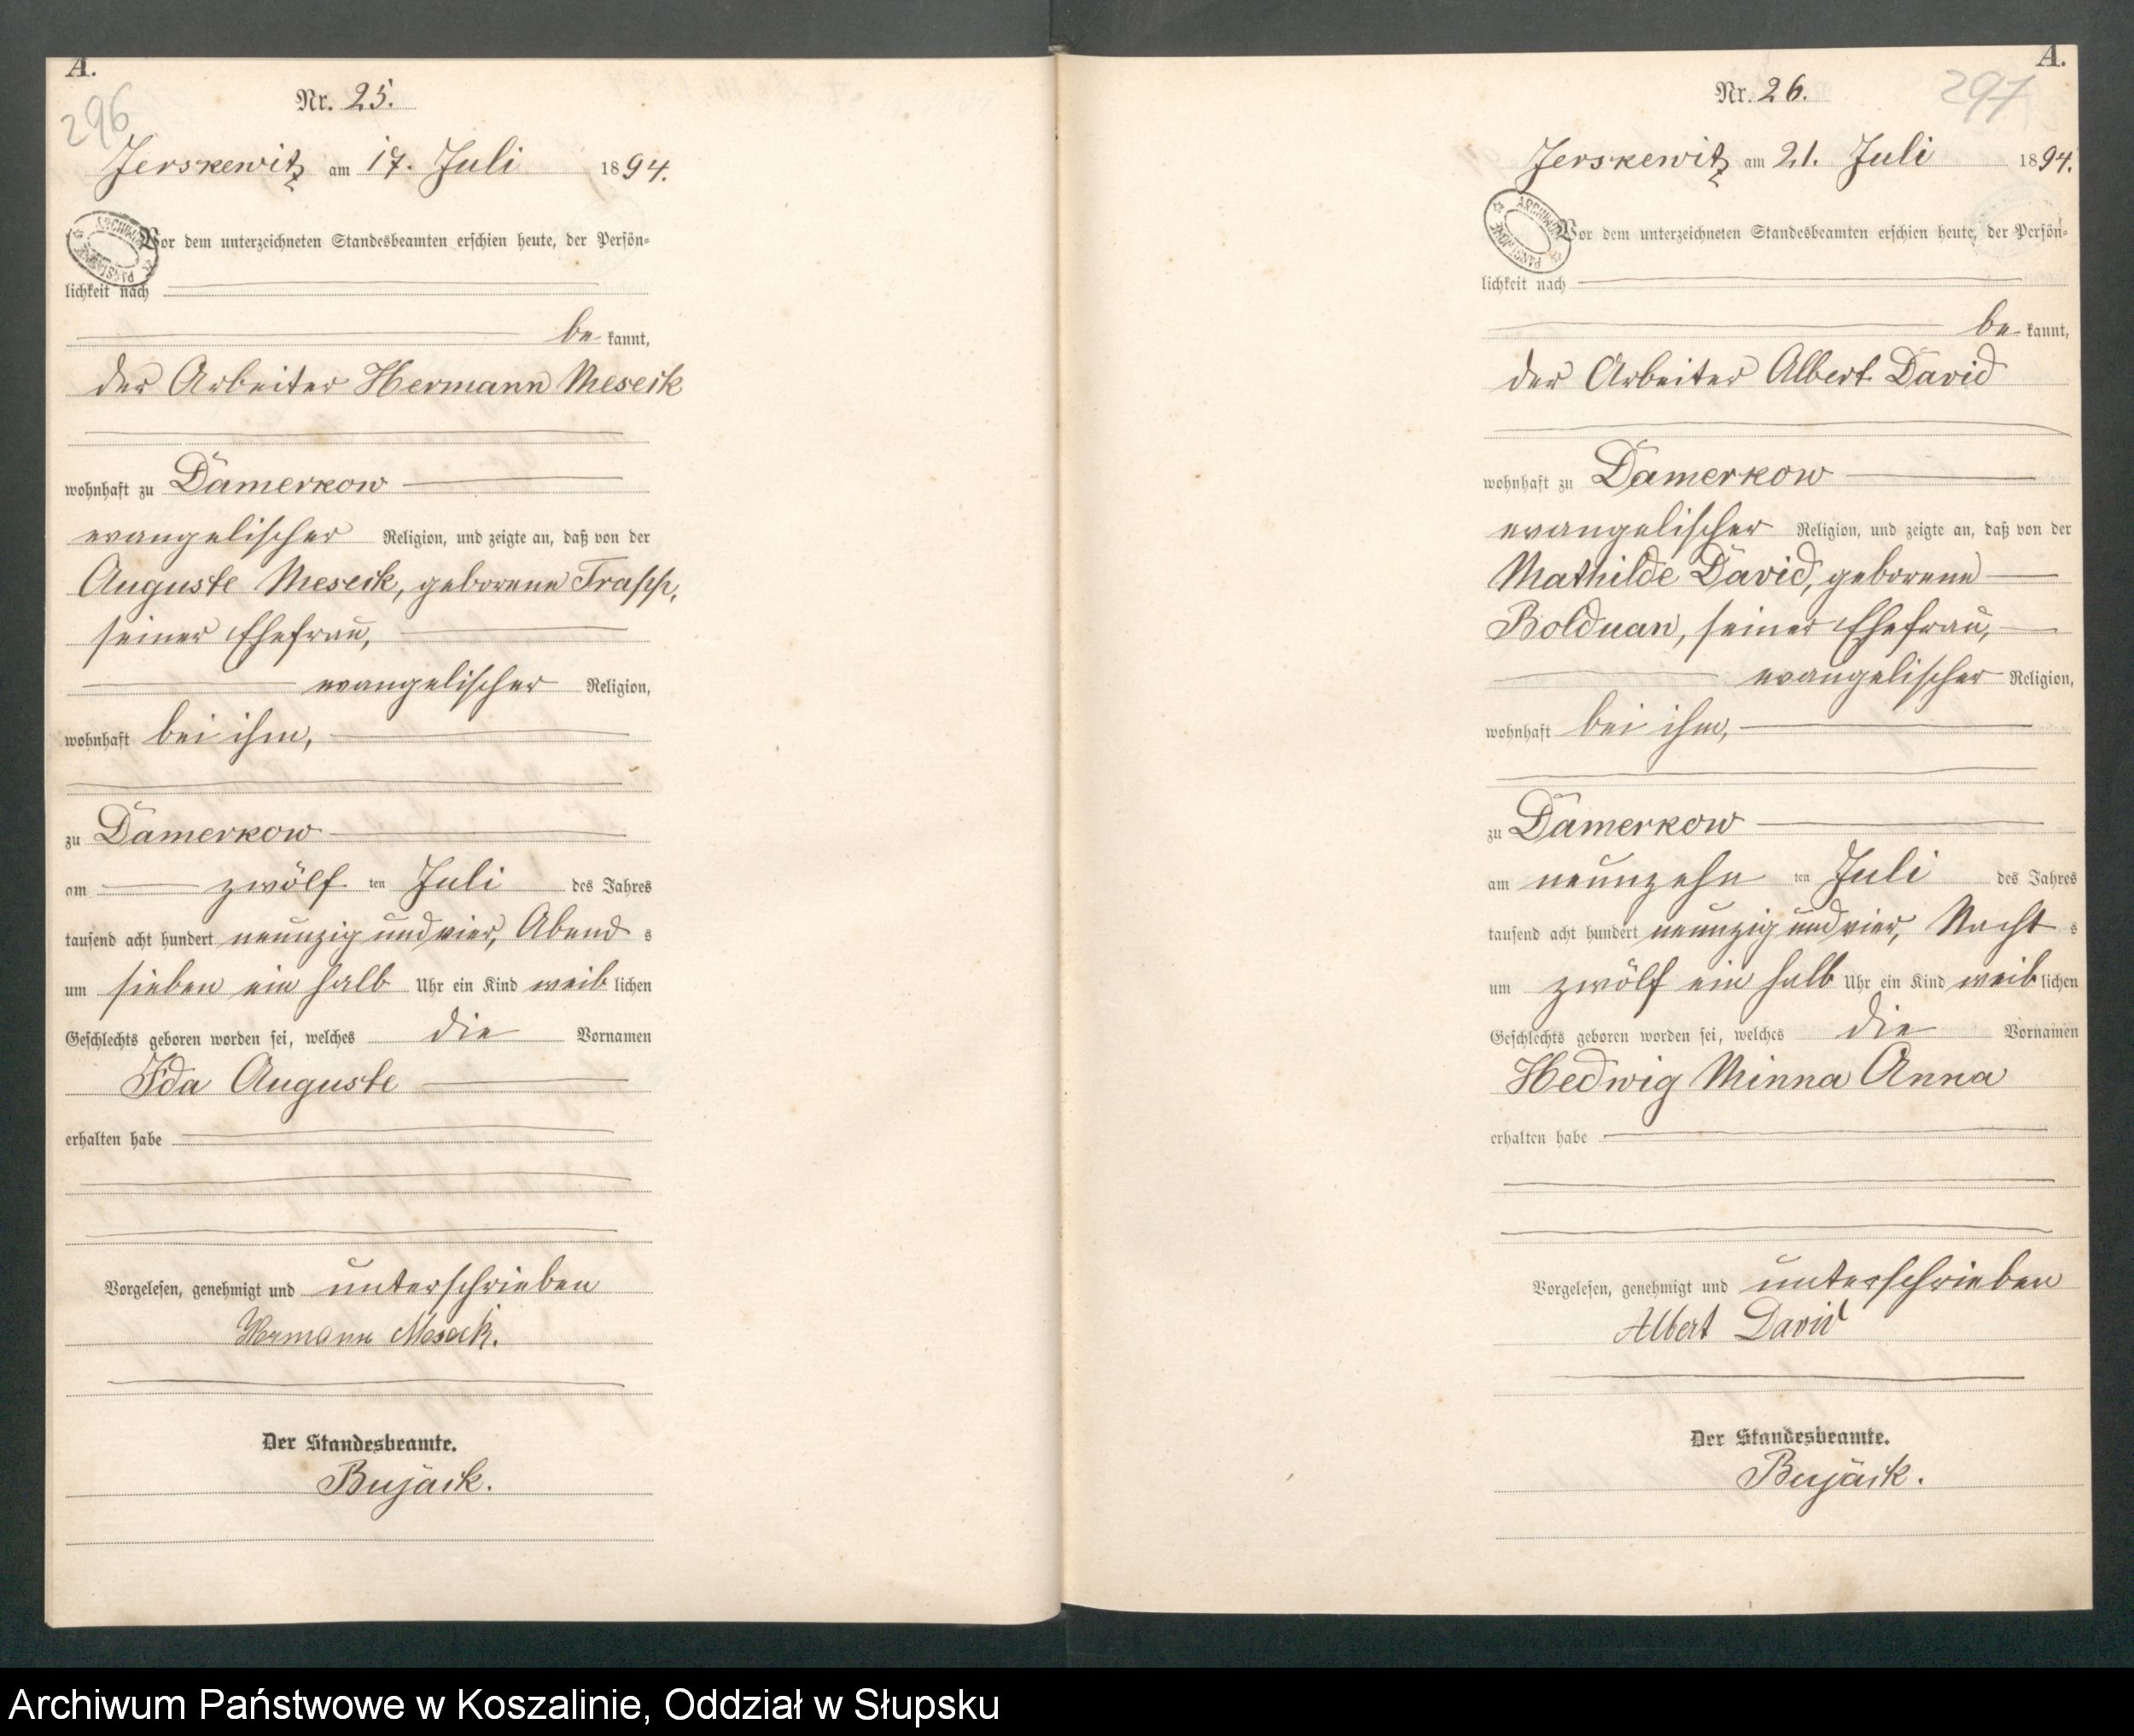 A.
296
Nr. 25.
Jerskewitz am 17. Juli 1894.
Vor dem unterzeichneten Standesbeamten erschien heute, der Persön-
lichkeit nach
be- kannt,
der Arbeiter Hermann Meseck
wohnhaft zu Damerkow
evangelischer Religion, und zeigte an, daß von der
Auguste Meseck, geborene Trapp,
seiner Ehefrau,
evangelischer Religion,
wohnhaft bei ihm,
zu Damerkow
am zwölf ten Juli des Jahres
tausend acht hundert neunzig und vier, Abend s
um sieben ein halb Uhr ein Kind weib lichen
Geschlechts geboren worden sei, welches die Vornamen
Ida Auguste
erhalten habe
Vorgelesen, genehmigt und unterschrieben
Hermann Meseck.
Der Standesbeamte.
Bujack.
A.
297
Nr. 26.
Jerskewitz am 21. Juli 1894.
Vor dem unterzeichneten Standesbeamten erschien heute, der Persön-
lichkeit nach
be- kannt,
der Arbeiter Albert David
wohnhaft zu Damerkow
evangelischer Religion, und zeigte an, daß von der
Mathilde David, geborene
Bolduan, seiner Ehefrau,
evangelischer Religion,
wohnhaft bei ihm,
zu Damerkow
am neunzehn ten Juli des Jahres
tausend acht hundert neunzig und vier, Nacht s
um zwölf ein halb Uhr ein Kind weib lichen
Geschlechts geboren worden sei, welches die Vornamen
Hedwig Minna Anna
erhalten habe
Vorgelesen, genehmigt und unterschrieben
Albert David
Der Standesbeamte.
Bujack.
Archiwum Państwowe w Koszalinie, Oddział w Słupsku